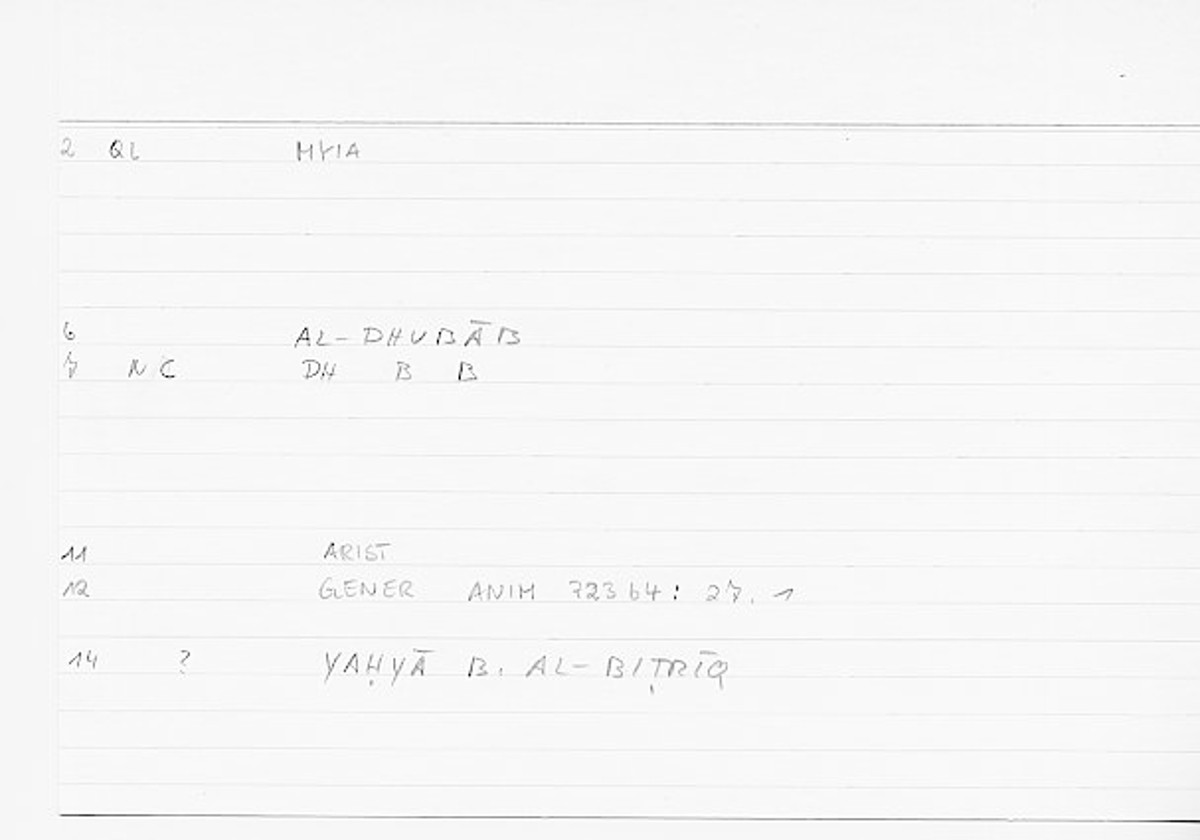 2 QL MYIA
6 AL-DHUBĀB
7 NC DH B B
11 ARIST
12 GENER ANIM 723b4: 27.1
14 ? YAḤYĀ B. AL-BIṬRĪQ